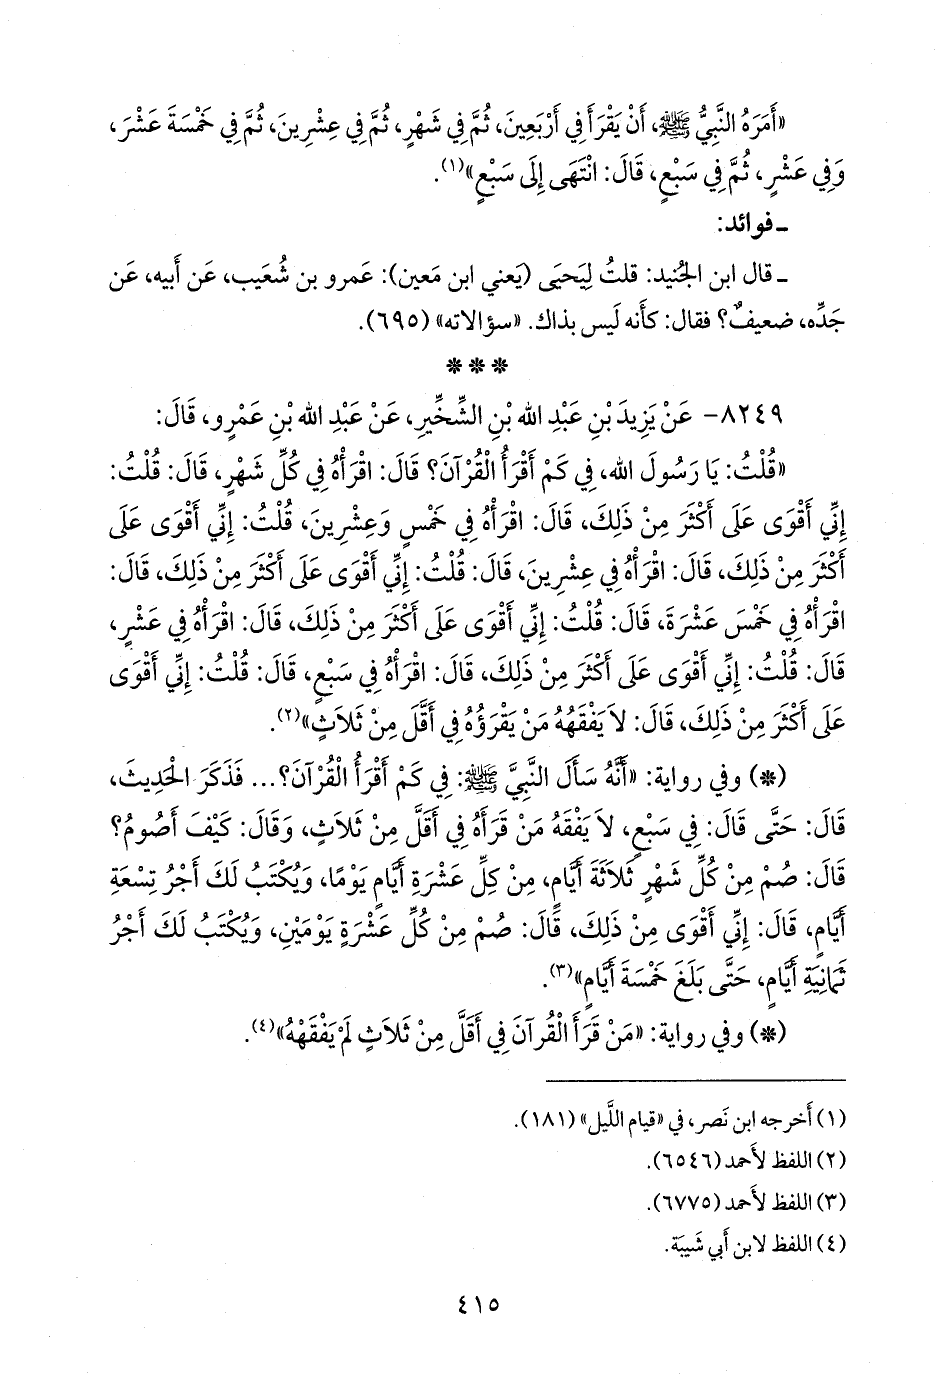 «أَمَرَهُ النَّبِيُّ ﷺ، أَنْ يَقْرَأَ فِي أَرْبَعِينَ، ثُمَّ فِي شَهْرٍ، ثُمَّ فِي عِشْرِينَ، ثُمَّ فِي خَمْسَةَ عَشْرَ،
وَفِي عَشْرٍ، ثُمَّ فِي سَبْعٍ، قَالَ: انْتَهَى إِلَى سَبْعٍ»(١).
ـ فوائد:
ـ قال ابن الجُنيد: قلتُ لِيَحيَى (يَعني ابن مَعين): عَمرو بن شُعَيب، عَن أَبيه، عَن
جَدِّه، ضعيفٌ؟ فقال: كأَنه لَيس بذاك. «سؤالاته» (٦٩٥).
* * *
٨٢٤٩- عَنْ يَزِيدَ بْنِ عَبْدِ الله بْنِ الشِّخِّيرِ، عَنْ عَبْدِ الله بْنِ عَمْرٍو، قَالَ:
«قُلْتُ: يَا رَسُولَ الله، فِي كَمْ أَقْرَأُ الْقُرْآنَ؟ قَالَ: اقْرَأْهُ فِي كُلِّ شَهْرٍ، قَالَ: قُلْتُ:
إِنِّي أَقْوَى عَلَى أَكْثَرَ مِنْ ذَلِكَ، قَالَ: اقْرَأْهُ فِي خَمْسٍ وَعِشْرِينَ، قُلْتُ: إِنِّي أَقْوَى عَلَى
أَكْثَرَ مِنْ ذَلِكَ، قَالَ: اقْرَأْهُ فِي عِشْرِينَ، قَالَ: قُلْتُ: إِنِّي أَقْوَى عَلَى أَكْثَرَ مِنْ ذَلِكَ، قَالَ:
اقْرَأْهُ فِي خَمْسَ عَشْرَةَ، قَالَ: قُلْتُ: إِنِّي أَقْوَى عَلَى أَكْثَرَ مِنْ ذَلِكَ، قَالَ: اقْرَأْهُ فِي عَشْرٍ،
قَالَ: قُلْتُ: إِنِّي أَقْوَى عَلَى أَكْثَرَ مِنْ ذَلِكَ، قَالَ: اقْرَأْهُ فِي سَبْعٍ، قَالَ: قُلْتُ: إِنِّي أَقْوَى
عَلَى أَكْثَرَ مِنْ ذَلِكَ، قَالَ: لاَ يَفْقَهُهُ مَنْ يَقْرَؤُهُ فِي أَقَلَّ مِنْ ثَلاَثٍ»(٢).
(*) وفي رواية: «أَنَّهُ سَأَلَ النَّبِيَّ ﷺ: فِي كَمْ أَقْرَأُ الْقُرْآنَ؟... فَذَكَرَ الْحَدِيثَ،
قَالَ: حَتَّى قَالَ: فِي سَبْعٍ، لاَ يَفْقَهُ مَنْ قَرَأَهُ فِي أَقَلَّ مِنْ ثَلاَثٍ، وَقَالَ: كَيْفَ أَصُومُ؟
قَالَ: صُمْ مِنْ كُلِّ شَهْرٍ ثَلاَثَةَ أَيَّامٍ، مِنْ كِلِّ عَشْرَةِ أَيَّامٍ يَوْمًا، وَيُكْتَبُ لَكَ أَجْرُ تِسْعَةِ
أَيَّامٍ، قَالَ: إِنِّي أَقْوَى مِنْ ذَلِكَ، قَالَ: صُمْ مِنْ كُلِّ عَشْرَةٍ يَوْمَيْنِ، وَيُكْتَبُ لَكَ أَجْرُ
ثَمَانِيَةِ أَيَّامٍ، حَتَّى بَلَغَ خَمْسَةَ أَيَّامٍ»(٣).
(*) وفي رواية: «مَنْ قَرَأَ الْقُرآنَ فِي أَقَلَّ مِنْ ثَلاَثٍ لَمْ يَفْقَهْهُ»(٤).
(١) أَخرجه ابن نَصر، في «قيام اللَّيل» (١٨١).
(٢) اللفظ لأَحمد (٦٥٤٦).
(٣) اللفظ لأَحمد (٦٧٧٥).
(٤) اللفظ لابن أَبي شَيبَة.
٤١٥